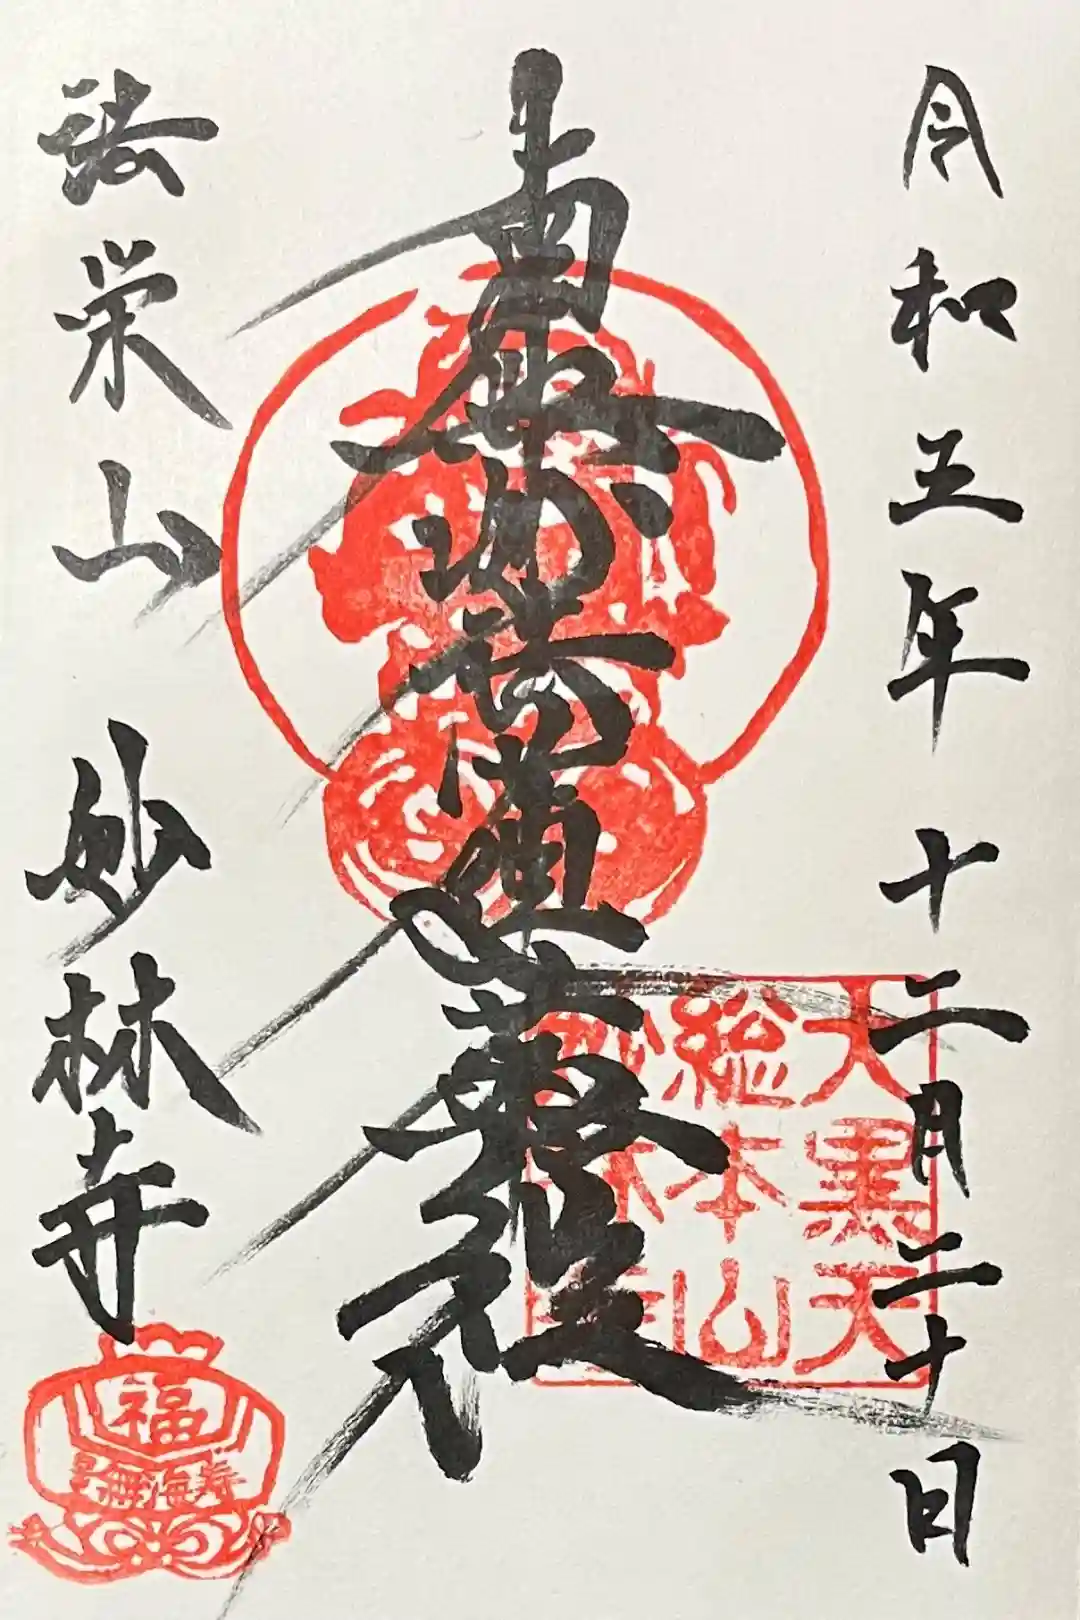 令和五年十二月二十日
南無妙法蓮華経
法栄山 妙林寺
大黒天
総本山
妙林寺
福
寿海無量